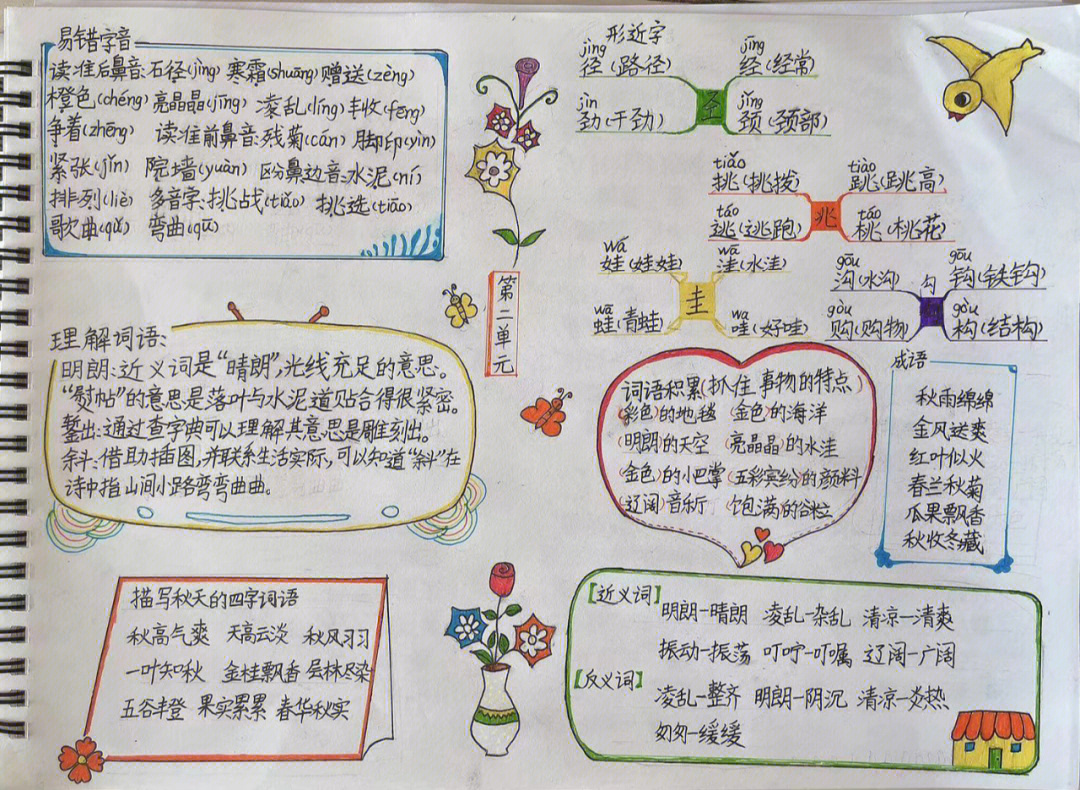 易错字音
读准后鼻音:石径(jìng) 寒霜(shuāng)赠送(zèng)
橙色(chéng)亮晶晶(jīng) 凌乱(líng)丰收(fēng)
争着(zhēng) 读准前鼻音:残菊(cán) 脚印(yìn)
紧张(jǐn) 院墙(yuàn) 区分鼻边音:水泥(ní)
排列(liè) 多音字:挑战(tiǎo) 挑选(tiāo)
歌曲(qǔ) 弯曲(qū)
形近字
jìng
径(路径)
jīng
经(经常)
jìn
劲(干劲)
jǐng
颈(颈部)
tiǎo
挑(挑拨)
tiào
跳(跳高)
táo
逃(逃跑)
兆
táo
桃(桃花)
wá
娃(娃娃)
wā
洼(水洼)
wā
蛙(青蛙)
圭
wa
哇(好哇)
gōu
沟(水沟)
gōu
钩(铁钩)
勾
gòu
购(购物)
gòu
构(结构)
第二单元
理解词语:
明朗:近义词是“晴朗”,光线充足的意思。
“熨帖”的意思是落叶与水泥道贴合得很紧密。
錾出:通过查字典可以理解其意思是雕刻出。
余斗:借助插图,并联系生活实际,可以知道“斜”在
诗中指山间小路弯弯曲曲。
词语积累(抓住事物的特点)
(彩色)的地毯 (金色)的海洋
(明朗)的天空 (亮晶晶)的水洼
(金色)的小巴掌 (五彩宾纷)的颜料
(辽阔)音乐厅 (饱满)的谷粒
成语
秋雨绵绵
金风送爽
红叶似火
春兰秋菊
瓜果飘香
秋收冬藏
描写秋天的四字词语
秋高气爽 天高云淡 秋风习习
一叶知秋 金桂飘香 层林尽染
五谷丰登 果实累累 春华秋实
【近义词】
明朗-晴朗 凌乱-杂乱 清凉-清爽
振动-振荡 叮咛-叮嘱 辽阔-广阔
【反义词】
凌乱-整齐 明朗-阴沉 清凉-炎热
匆匆-缓缓